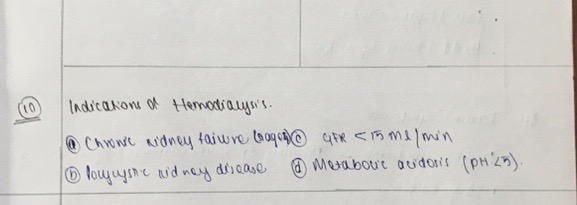 10 Indications of Hemodialysis.
a Chronic kidney failure c GFR < 15 ml/min
b Polycystic kidney disease d Metabolic acidosis (PH < 5).